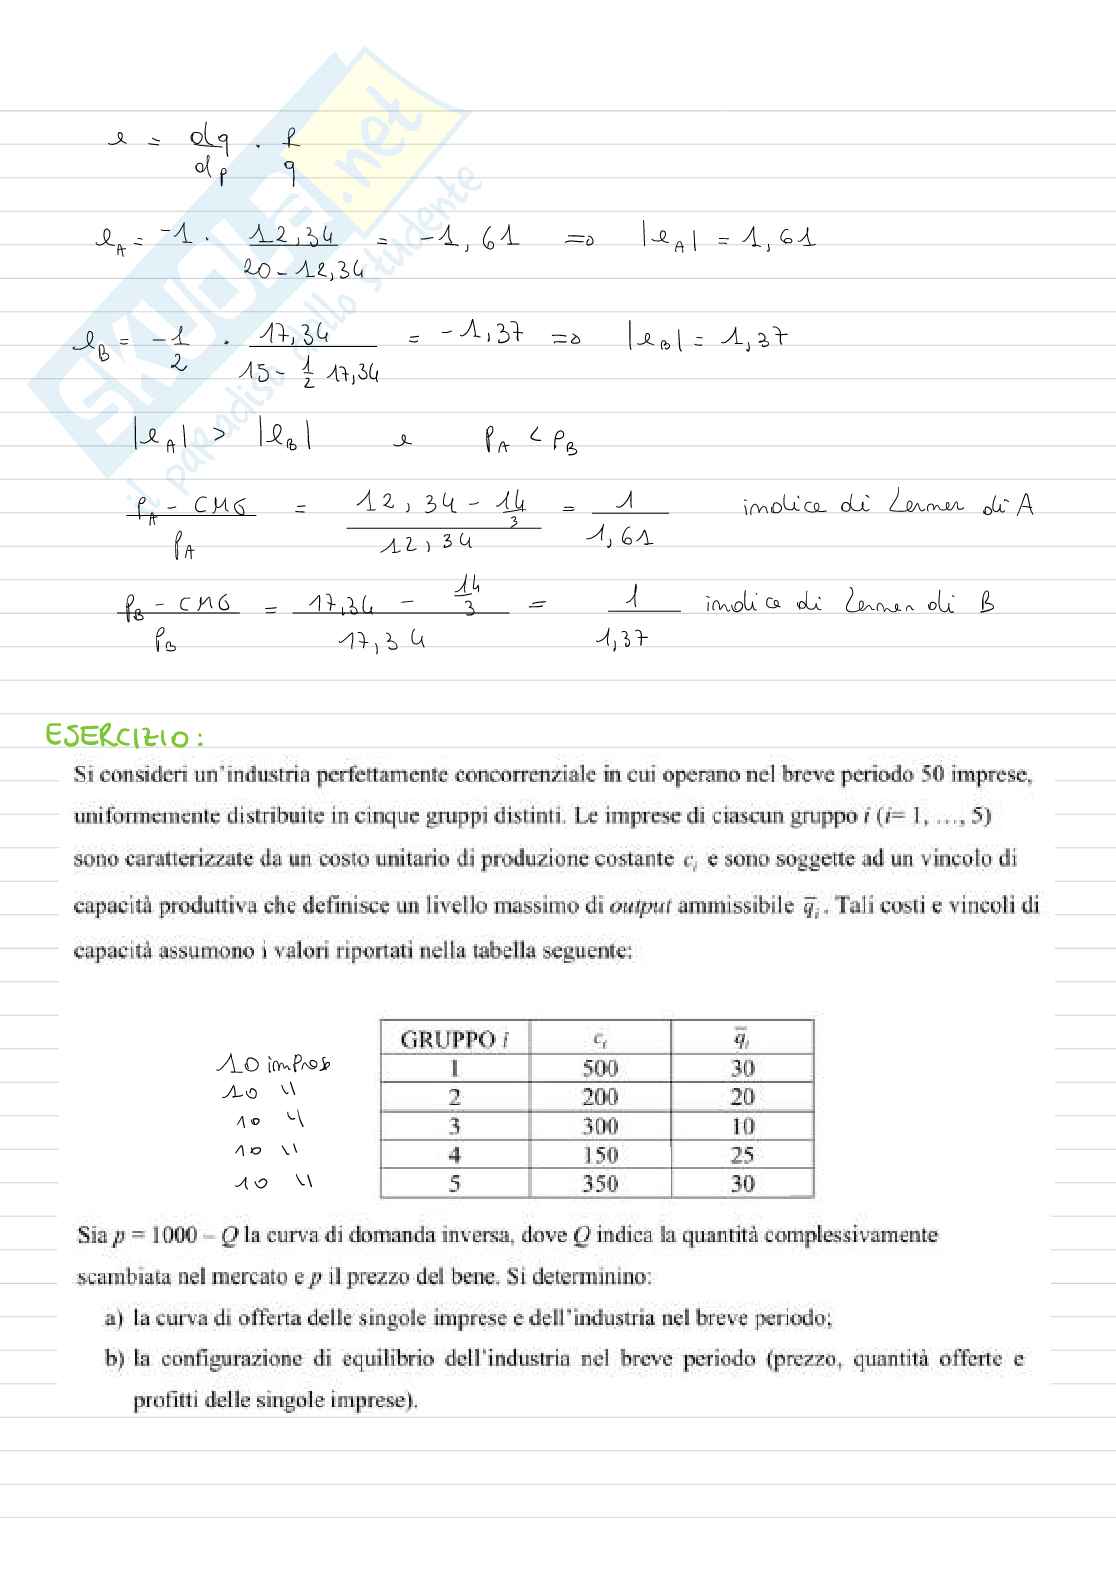 e = dq/dp · p/q
e_A = -1 · 12,34/(20 - 12,34) = -1,61 => |e_A| = 1,61
e_B = -1/2 · 17,34/(15 - 1/2 17,34) = -1,37 => |e_B| = 1,37
|e_A| > |e_B| e p_A < p_B
(p_A - CMG)/p_A = (12,34 - 14/3)/12,34 = 1/1,61 indice di Lerner di A
(p_B - CMG)/p_B = (17,34 - 14/3)/17,34 = 1/1,37 indice di Lerner di B
SKUOLA.net
il paradiso dello studente
ESERCIZIO:
Si consideri un'industria perfettamente concorrenziale in cui operano nel breve periodo 50 imprese,
uniformemente distribuite in cinque gruppi distinti. Le imprese di ciascun gruppo i (i= 1, …, 5)
sono caratterizzate da un costo unitario di produzione costante c_i e sono soggette ad un vincolo di
capacità produttiva che definisce un livello massimo di output ammissibile q̅_i. Tali costi e vincoli di
capacità assumono i valori riportati nella tabella seguente:
GRUPPO i c_i q̅_i
10 imprese 1 500 30
10 " 2 200 20
10 " 3 300 10
10 " 4 150 25
10 " 5 350 30
Sia p = 1000 – Q la curva di domanda inversa, dove Q indica la quantità complessivamente
scambiata nel mercato e p il prezzo del bene. Si determinino:
a) la curva di offerta delle singole imprese e dell'industria nel breve periodo;
b) la configurazione di equilibrio dell'industria nel breve periodo (prezzo, quantità offerte e
profitti delle singole imprese).